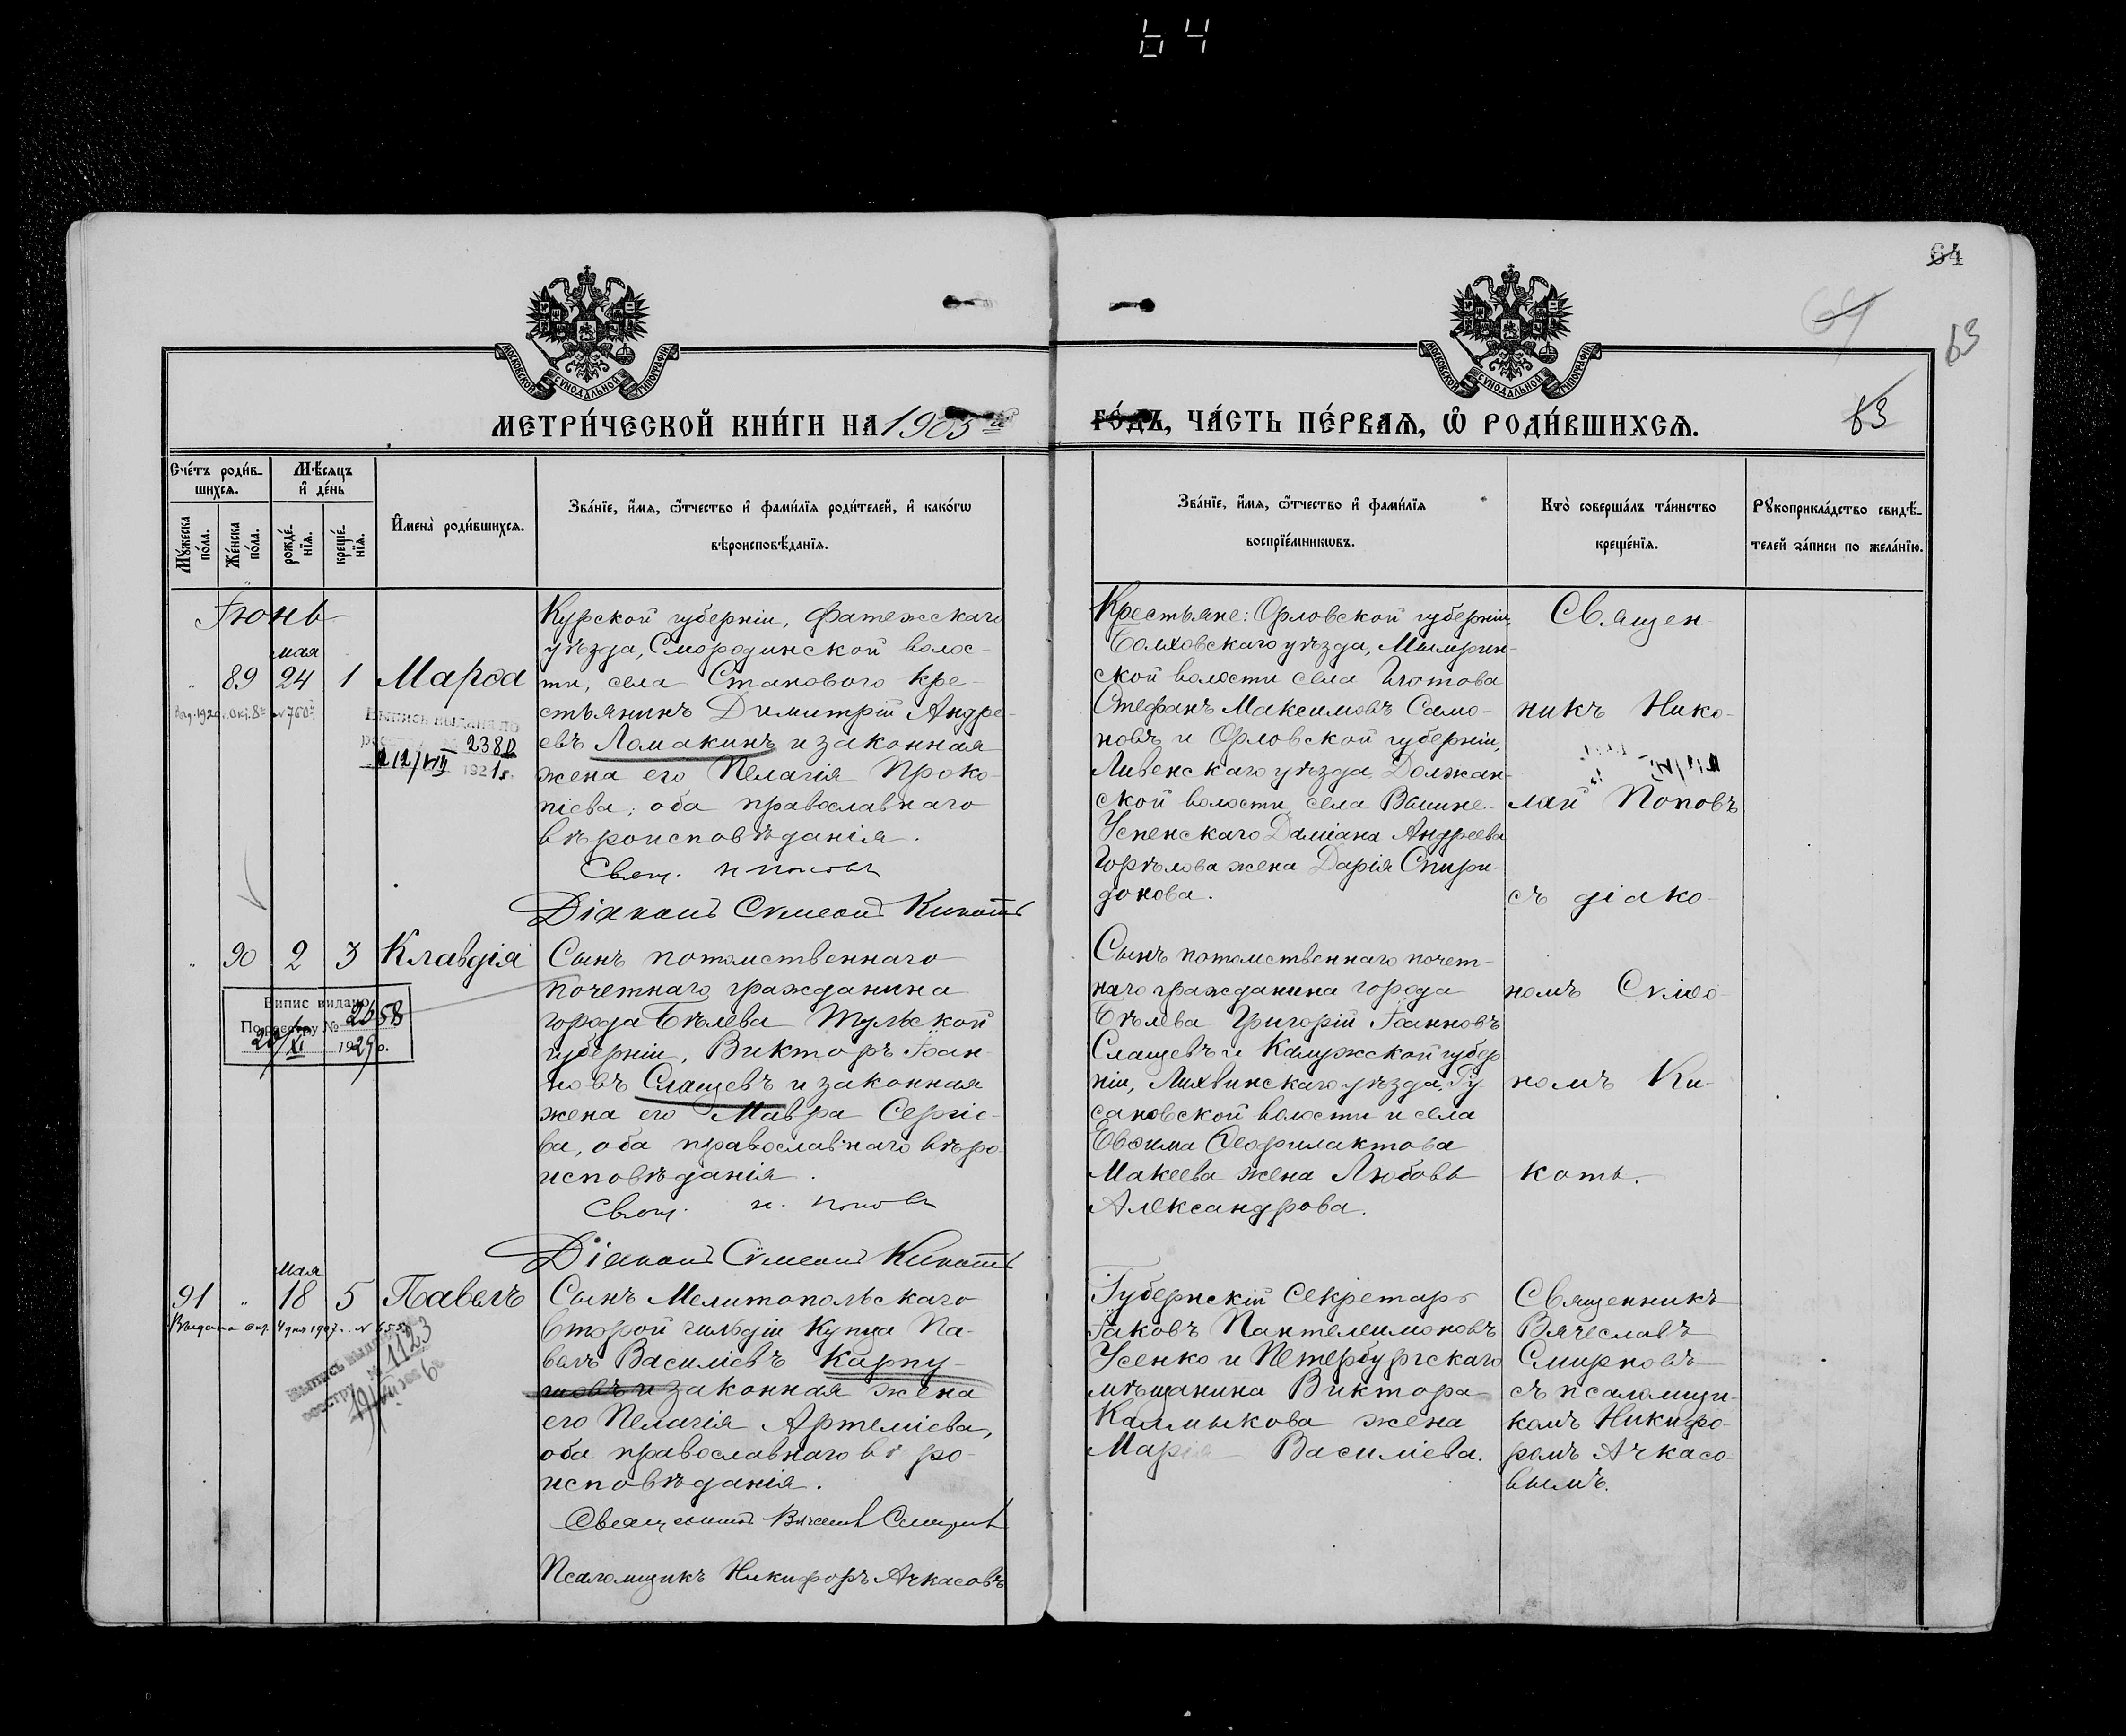 64
64
63
63
МОСКОВСКОЙ СѴНОДАЛЬНОЙ ТИПОГРАФІИ
МОСКОВСКОЙ СѴНОДАЛЬНОЙ ТИПОГРАФІИ
МЕТРИ́ЧЕСКОЙ КНИ́ГИ НА 1905й
ГО́ДЪ, ЧА́СТЬ ПЕ́РВАѦ, Ѽ РОДИ́ВШИХСѦ.
Сче́тъ роди́в-
шихсѧ.
Мꙋ́жеска по́ла.
Же́нска по́ла.
Мѣ́сѧцъ
и҆ де́нь
рожде́-нїѧ.
креще́-нїѧ.
И҆мена̀ роди́вшихсѧ.
Зва́нїе, и҆́мѧ, ѻ҆́тчество и҆ фами́лїѧ роди́телей, и҆ како́гѡ
вѣроисповѣ́данїѧ.
Зва́нїе, и҆́мѧ, ѻ҆́тчество и҆ фами́лїѧ
воспрїе́мникѡвъ.
Кто̀ соверша́лъ та́инство
креще́нїѧ.
Рꙋкоприкла́дство свидѣ́-
телей за́писи по жела́нїю.
Іюнь
мая
89 24 1 Марѳа
Выпись выдана по
2380
12/VIII 1921 г.
Курской губерніи, Фатежскаго
уѣзда, Смородинской волос-
ти, села Становаго кре-
стьянинъ Димитрій Андре-
евъ Ломакинъ и законная
жена его Пелагія Проко-
піева; оба православнаго
вѣроисповѣданія.
Свящ. Н Поповъ
Діаконъ Сѵмеонъ Кикоть
Крестьяне: Орловской губерніи,
Болховскаго уѣзда, Мымрин-
ской волости села
Стефанъ Максимовъ Само-
новъ и Орловской губерніи,
Ливенскаго уѣзда Должан-
ской волости села
Успенскаго Даміана Андреева
Горѣлова жена Дарія Спири-
донова.
Священ-
никъ Нико-
лай Поповъ
съ діако-
номъ Сѵмео-
номъ Ки-
коть.
90 2 3 Клавдія
Випис видано
По реєстру № 2658
28/XI 1929 р.
Сынъ потомственнаго
почетнаго гражданина
города Бѣлева Тульской
губерніи, Викторъ Іоан-
новъ Слащевъ и законная
жена его Мавра Сергіе-
ва, оба православнаго вѣро-
исповѣданія.
Свящ. Н. Поповъ
Діаконъ Сѵмеонъ Кикоть
Сынъ потомственнаго почет-
наго гражданина города
Бѣлева Григорій Іоанновъ
Слащевъ и Калужской губер
ніи, Лихвинскаго уѣзда, Гу
сановской волости и села
Евѳима Ѳеофилактова
Макеева жена Любовь
Александрова.
мая
91 18 5 Павелъ
1123
Сынъ Мелитопольскаго
второй гильдіи купца Па-
велъ Василіевъ Карпу-
шовъ и законная жена
его Пелагія Артеміева,
оба православнаго вѣро-
исповѣданія.
Священникъ Вячеславъ Смирновъ
Псаломщикъ Никифоръ Ачкасовъ
Губернскій Секретарь
Іаковъ Пантелеимоновъ
Усенко и Петербургскаго
мѣщанина Виктора
Калмыкова жена
Марія Василіева.
Священникъ
Вячеславъ
Смирновъ
съ псаломщи-
комъ Никифо-
ромъ Ачкасо-
вымъ.